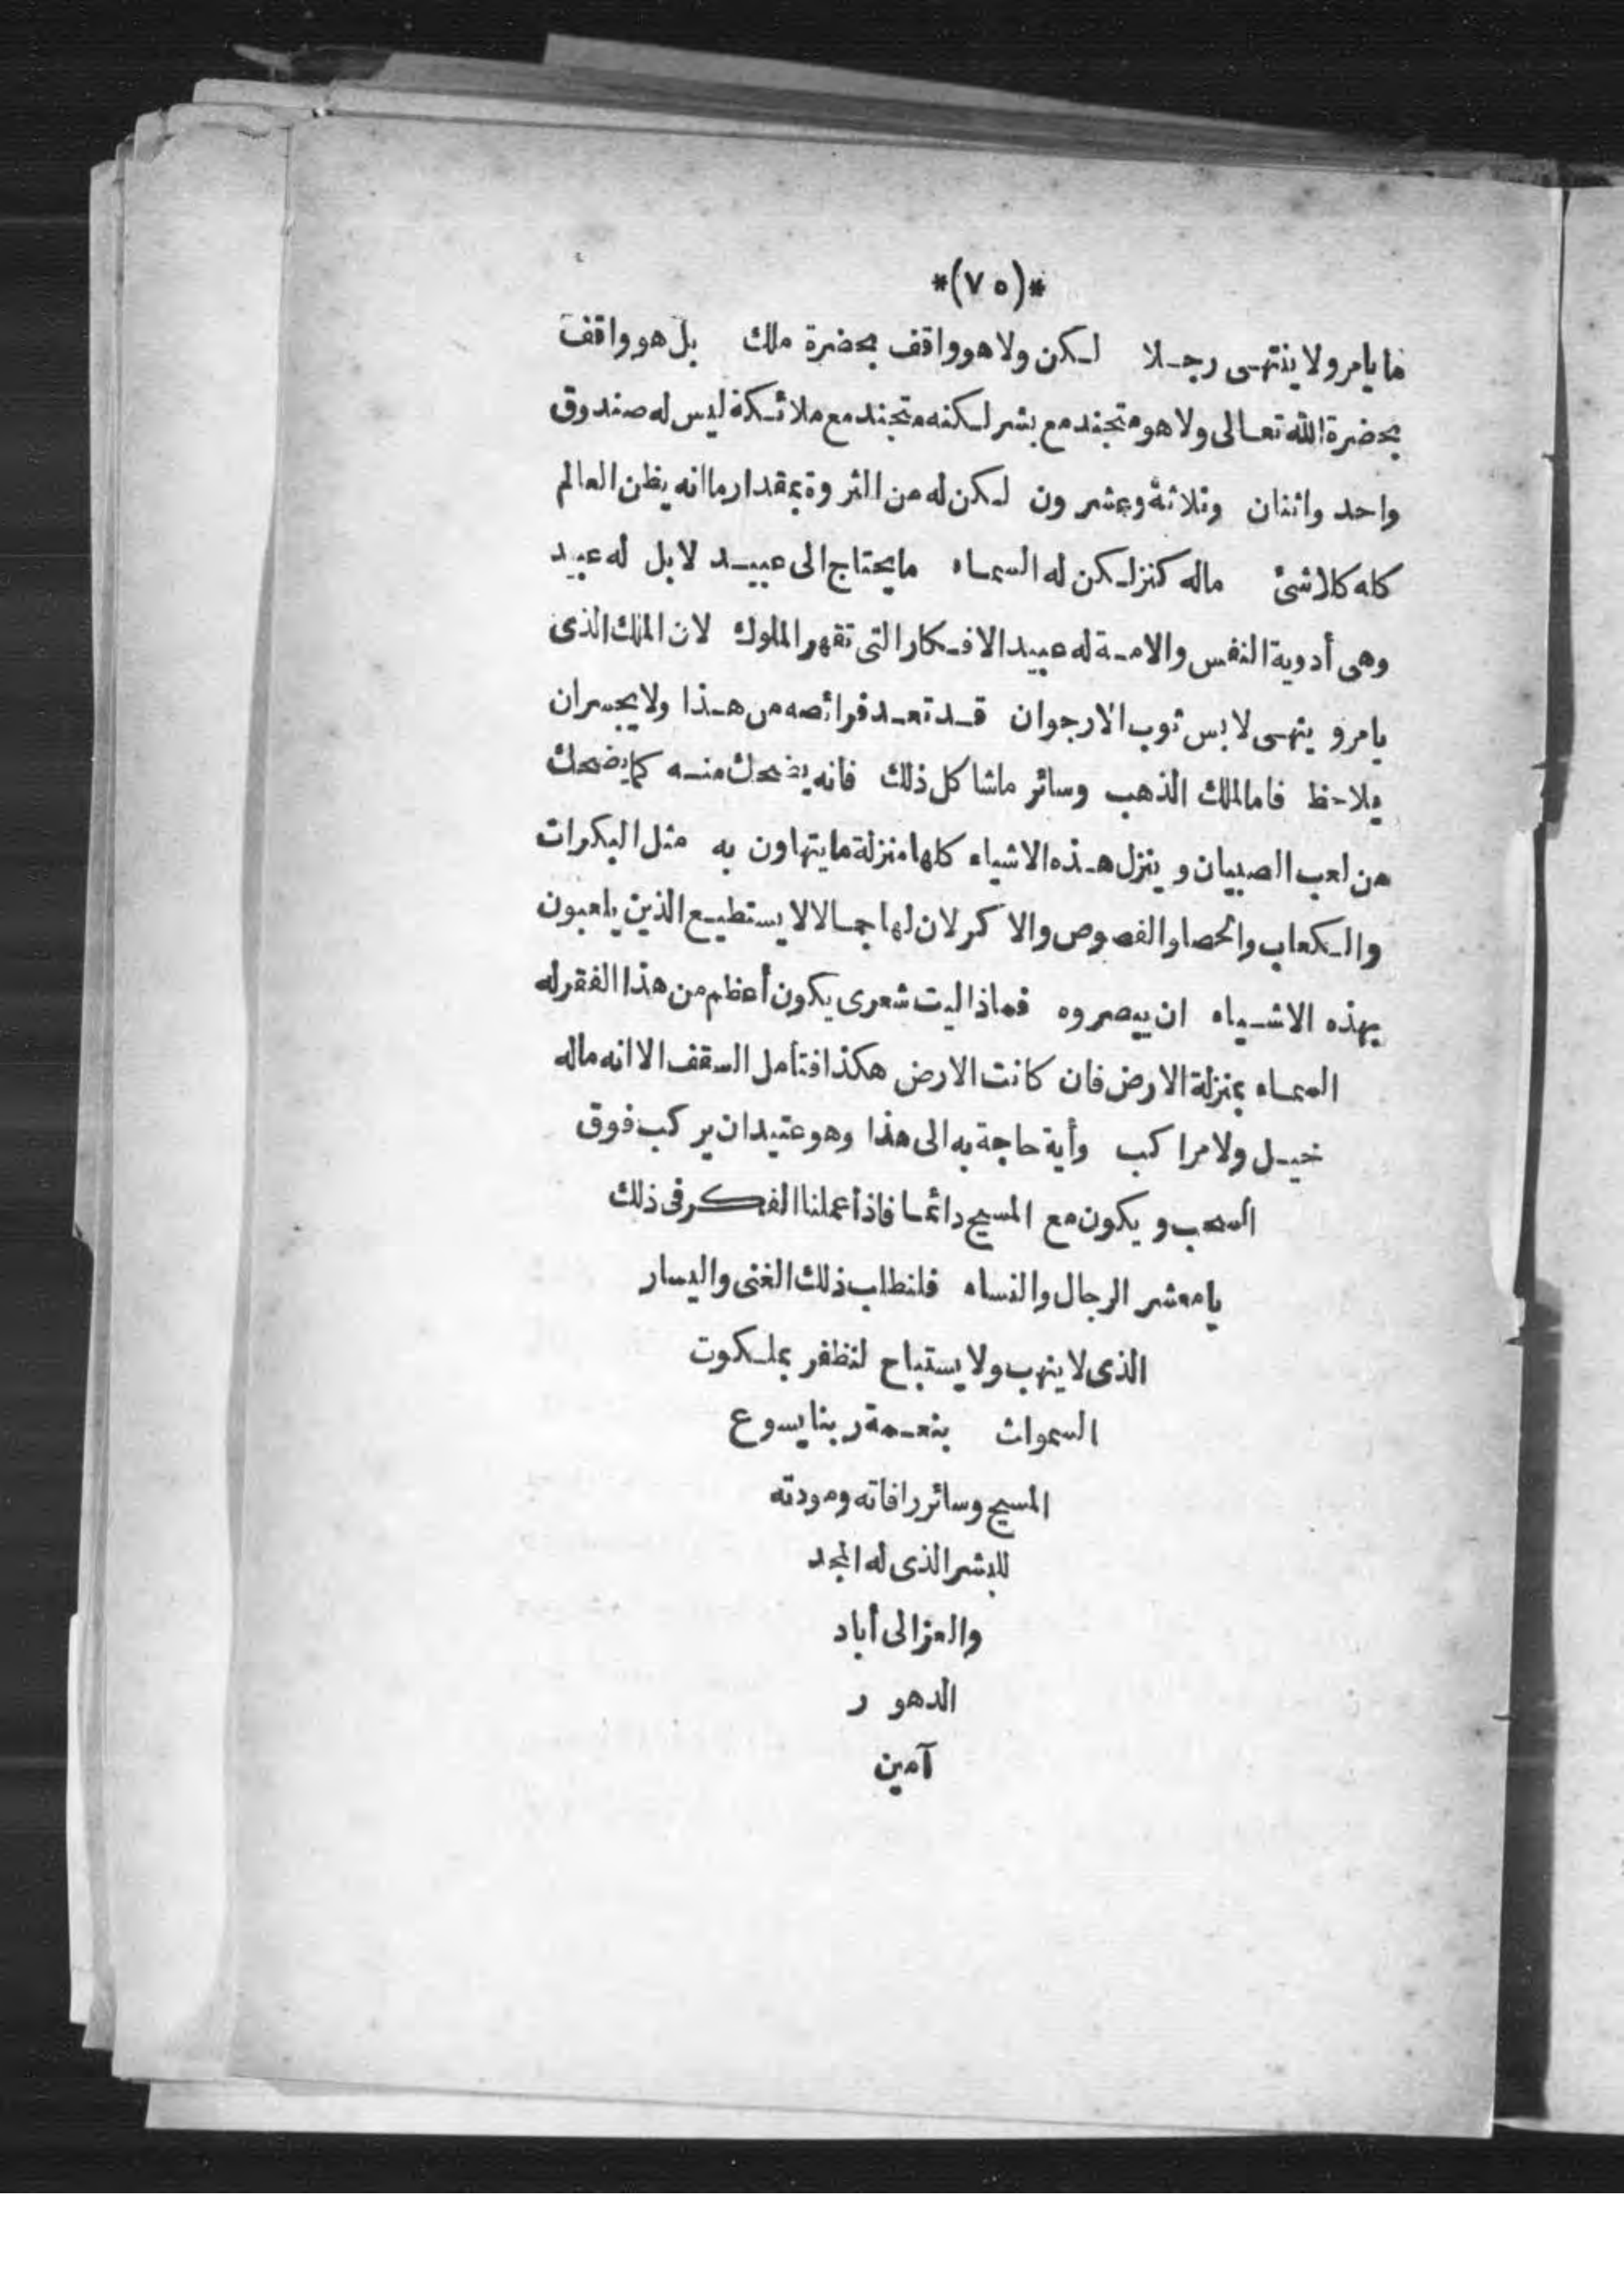 *(٧٥)*
ما يامر ولا ينتهى رجلا لكن ولا هو واقف بحضرة ملك بل هو واقف
بحضرة الله تعالى ولا هو متجند مع بشر لكنه متجند مع ملائكة ليس له صندوق
واحد واثنان وثلاثة وعشرون لكن له من الثروة بمقدار ما انه يظن العالم
كله كلاشئ ماله كنز لكن له السماء ما يحتاج الى عبيد لا بل له عبيد
وهى أدوية النفس والامة له عبيد الافكار التى تقهر الملوك لان الملك الذى
يامر و ينهى لابس ثوب الارجوان قد تعد فرائصه من هذا ولا يجسر ان
يلاحظ فاما الملك الذهب وسائر ماشا كل ذلك فانه يضحك منه كما يضحك
من لعب الصبيان و ينزل هذه الاشياء كلها منزلة ما يتهاون به مثل البكرات
والكعاب والحصا والفصوص والاكر لان لها جمالا لا يستطيع الذين يلعبون
بهذه الاشياء ان يبصروه فماذا ليت شعرى يكون أعظم من هذا الفقر له
السماء بمنزلة الارض فان كانت الارض هكذا فتأمل السقف الا انه ماله
خيل ولا مراكب وأية حاجة به الى هذا وهو عتيد ان يركب فوق
السحب و يكون مع المسيح دائما فاذ أعملنا الفكر فى ذلك
يا معشر الرجال والنساء فلنطلب ذلك الغنى واليسار
الذى لا ينهب ولا يستباح لنظفر بملكوت
السموات بنعمة ربنا يسوع
المسيح وسائر رافاته ومودته
للبشر الذى له المجد
والعز الى أباد
الدهور
آمين